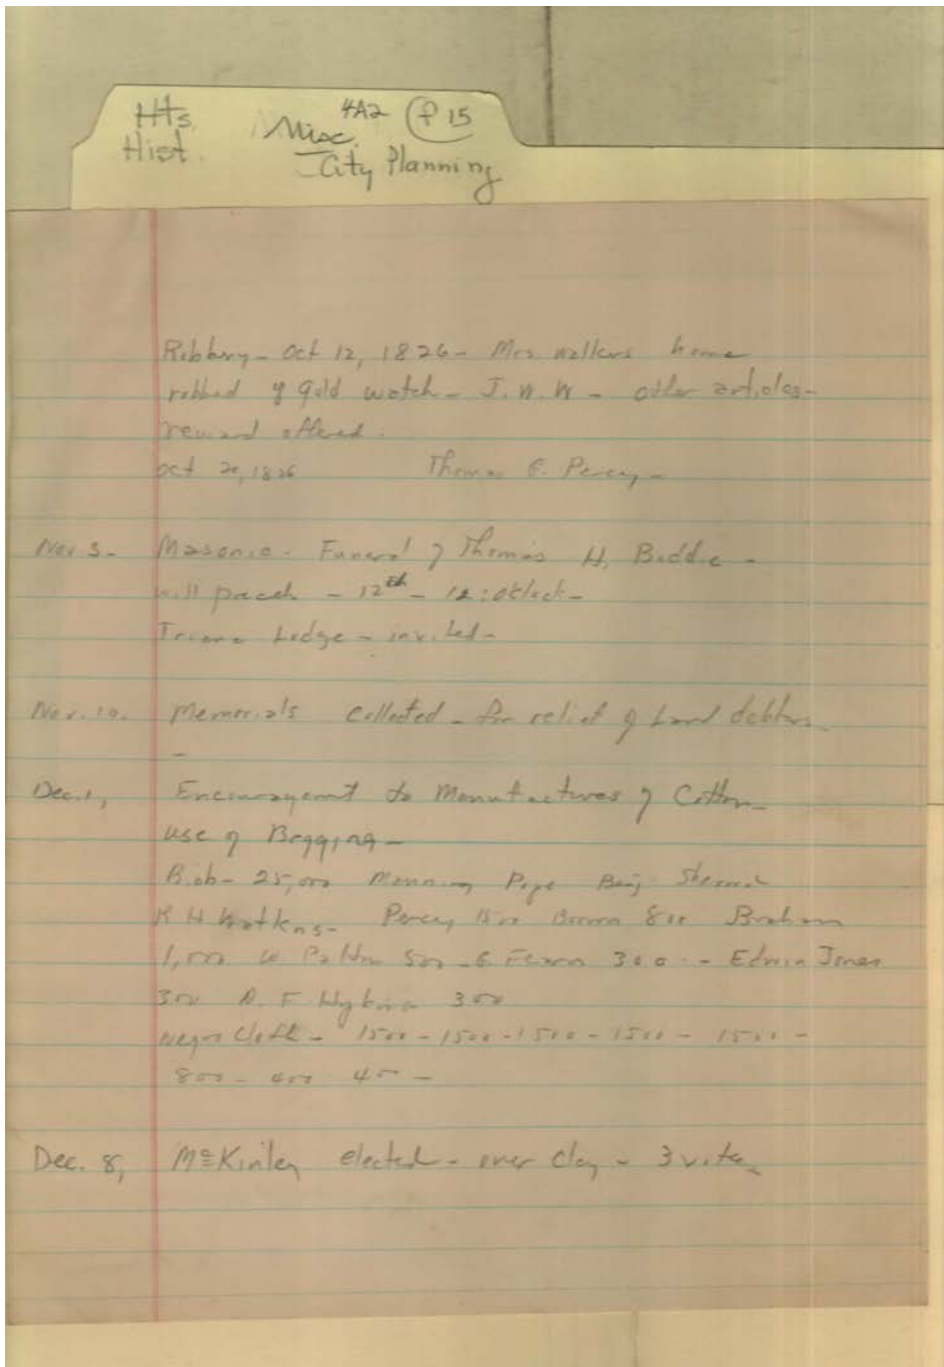 Hts. Misc. 4A2 P 15
Hist. City Planning
Robbery - Oct 12, 1826 - Mrs walkers home
robbed of gold watch - J. W. W - other articles -
reward offered.
Oct 20, 1826 Thomas G. Percy -
Nov 3 - Masonic - Funeral of Thomas H. Boddie -
will preach - 12th - 12:o'clock -
Triana Lodge - invited -
Nov. 10. Memorials collected - for relief of Land debtors -
-
Dec. 1, Encouragement to Manufactures of Cotton -
use of Bagging -
Bibb - 25,000 Manning Pope Benj. Sherrod
K H Watkins - Percy 1500 Brown 800 Braham
1,000 W Patton 500 - G Fearn 300 - Edwin Jones
300 300
Negro Cloth - 1500 - 1500 - 1500 - 1500 - 1500 -
800 - 400 -
Dec. 8, McKinley elected - over Clay - 3 votes